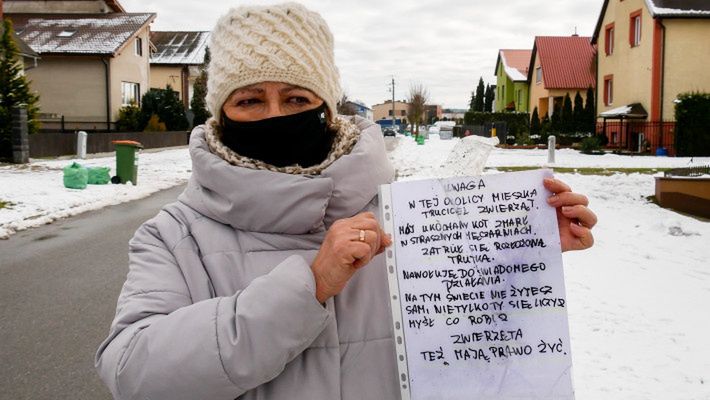 UWAGA
W TEJ OKOLICY MIESZKA
TRUCICIEL ZWIERZĄT.
MÓJ UKOCHANY KOT ZMARŁ
W STRASZNYCH MĘCZARNIACH.
ZATRUŁ SIĘ ROZŁOŻONĄ
TRUTKĄ.
NAWOŁUJĘ DO ŚWIADOMEGO
DZIAŁANIA.
NA TYM ŚWIECIE NIE ŻYJESZ
SAM! NIE TYLKO TY SIĘ LICZYSZ
MYŚL CO ROBISZ
ZWIERZĘTA
TEŻ MAJĄ PRAWO ŻYĆ.